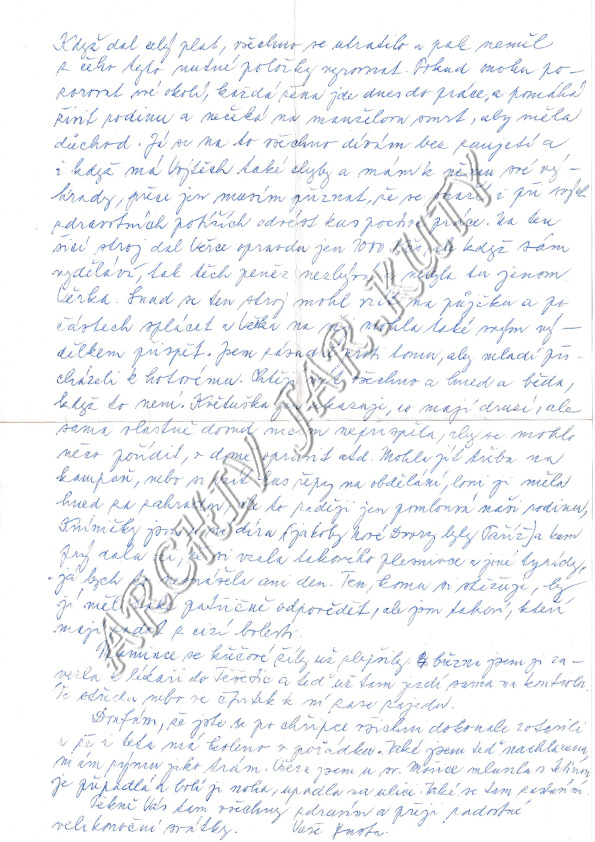 Když dal celý plat, všechno se utratilo a pak neměl
z čeho tyto nutné položky vyrovnat. Pokud mohu po-
zorovat své okolí, každá žena jde dnes do práce, a pomáhá
živit rodinu a nečeká na manželovu smrt, aby měla
důchod. Já se na to všechno dívám bez zaujetí a
i když má Vojtěch také chyby a mám k němu své vý-
hrady, přece jen musím přiznat, že se snaží i při svých
zdravotních potížích odvést kus poctivé práce. Na ten
šicí stroj dal Věrce opravdu jen 1000 když sám
vydělává, tak těch peněz nezbývá a nebyla tu jenom
Věrka. Snad se ten stroj mohl vzít na půjčku a po
částech splácet a Věrka na něj mohla také svým vý-
dělkem přispět. Jsem zásadně proti tomu, aby mladí při-
cházeli k hotovému. Chtějí mít všechno a hned a běda,
když to není. Květuška jen ukazuje, co mají druzí, ale
sama vlastně dosud ničím nepřispěla, aby se mohlo
něco pořídit, v domě opravit atd. Mohla jít třeba na
kampaň, nebo si vzít kus řepy na obdělání, loni ji měla
hned za zahradou, ale to raději jen pomlouvá naši rodinu,
Kniničky jsou díra (jakoby Nové Dvory byly Paříž) a kam
prý dala oči, že si vzala takového plesnivce a jiné tyrády,
já bych to nesnášela ani den. Ten, komu si stěžuje, by
jí měl také patřičně odpovědět, ale jsou takoví, kteří
mají radost z cizí bolesti.
Mamince se křečové žíly už zlepšily. 4. března jsem ji za-
vezla k lékaři do a teď už tam jezdí sama na kontrolu.
Ve středu nebo ve čtvrtek k ní zase zajedu.
Doufám, že jste se po chřipce všichni dokonale zotavili
a že i teta má koleno v pořádku. Také jsem teď nachlazená,
mám rýmu jako trám. Včera jsem u sv. Mořice mluvila s
je přepadlá a bolí ji noha, upadla na ulici. Také se tam zastavím.
Pěkně Vás tam všechny zdravím a přeji radostné
velikonoční svátky. Vaše
ARCHIV JAR. KUTÝ